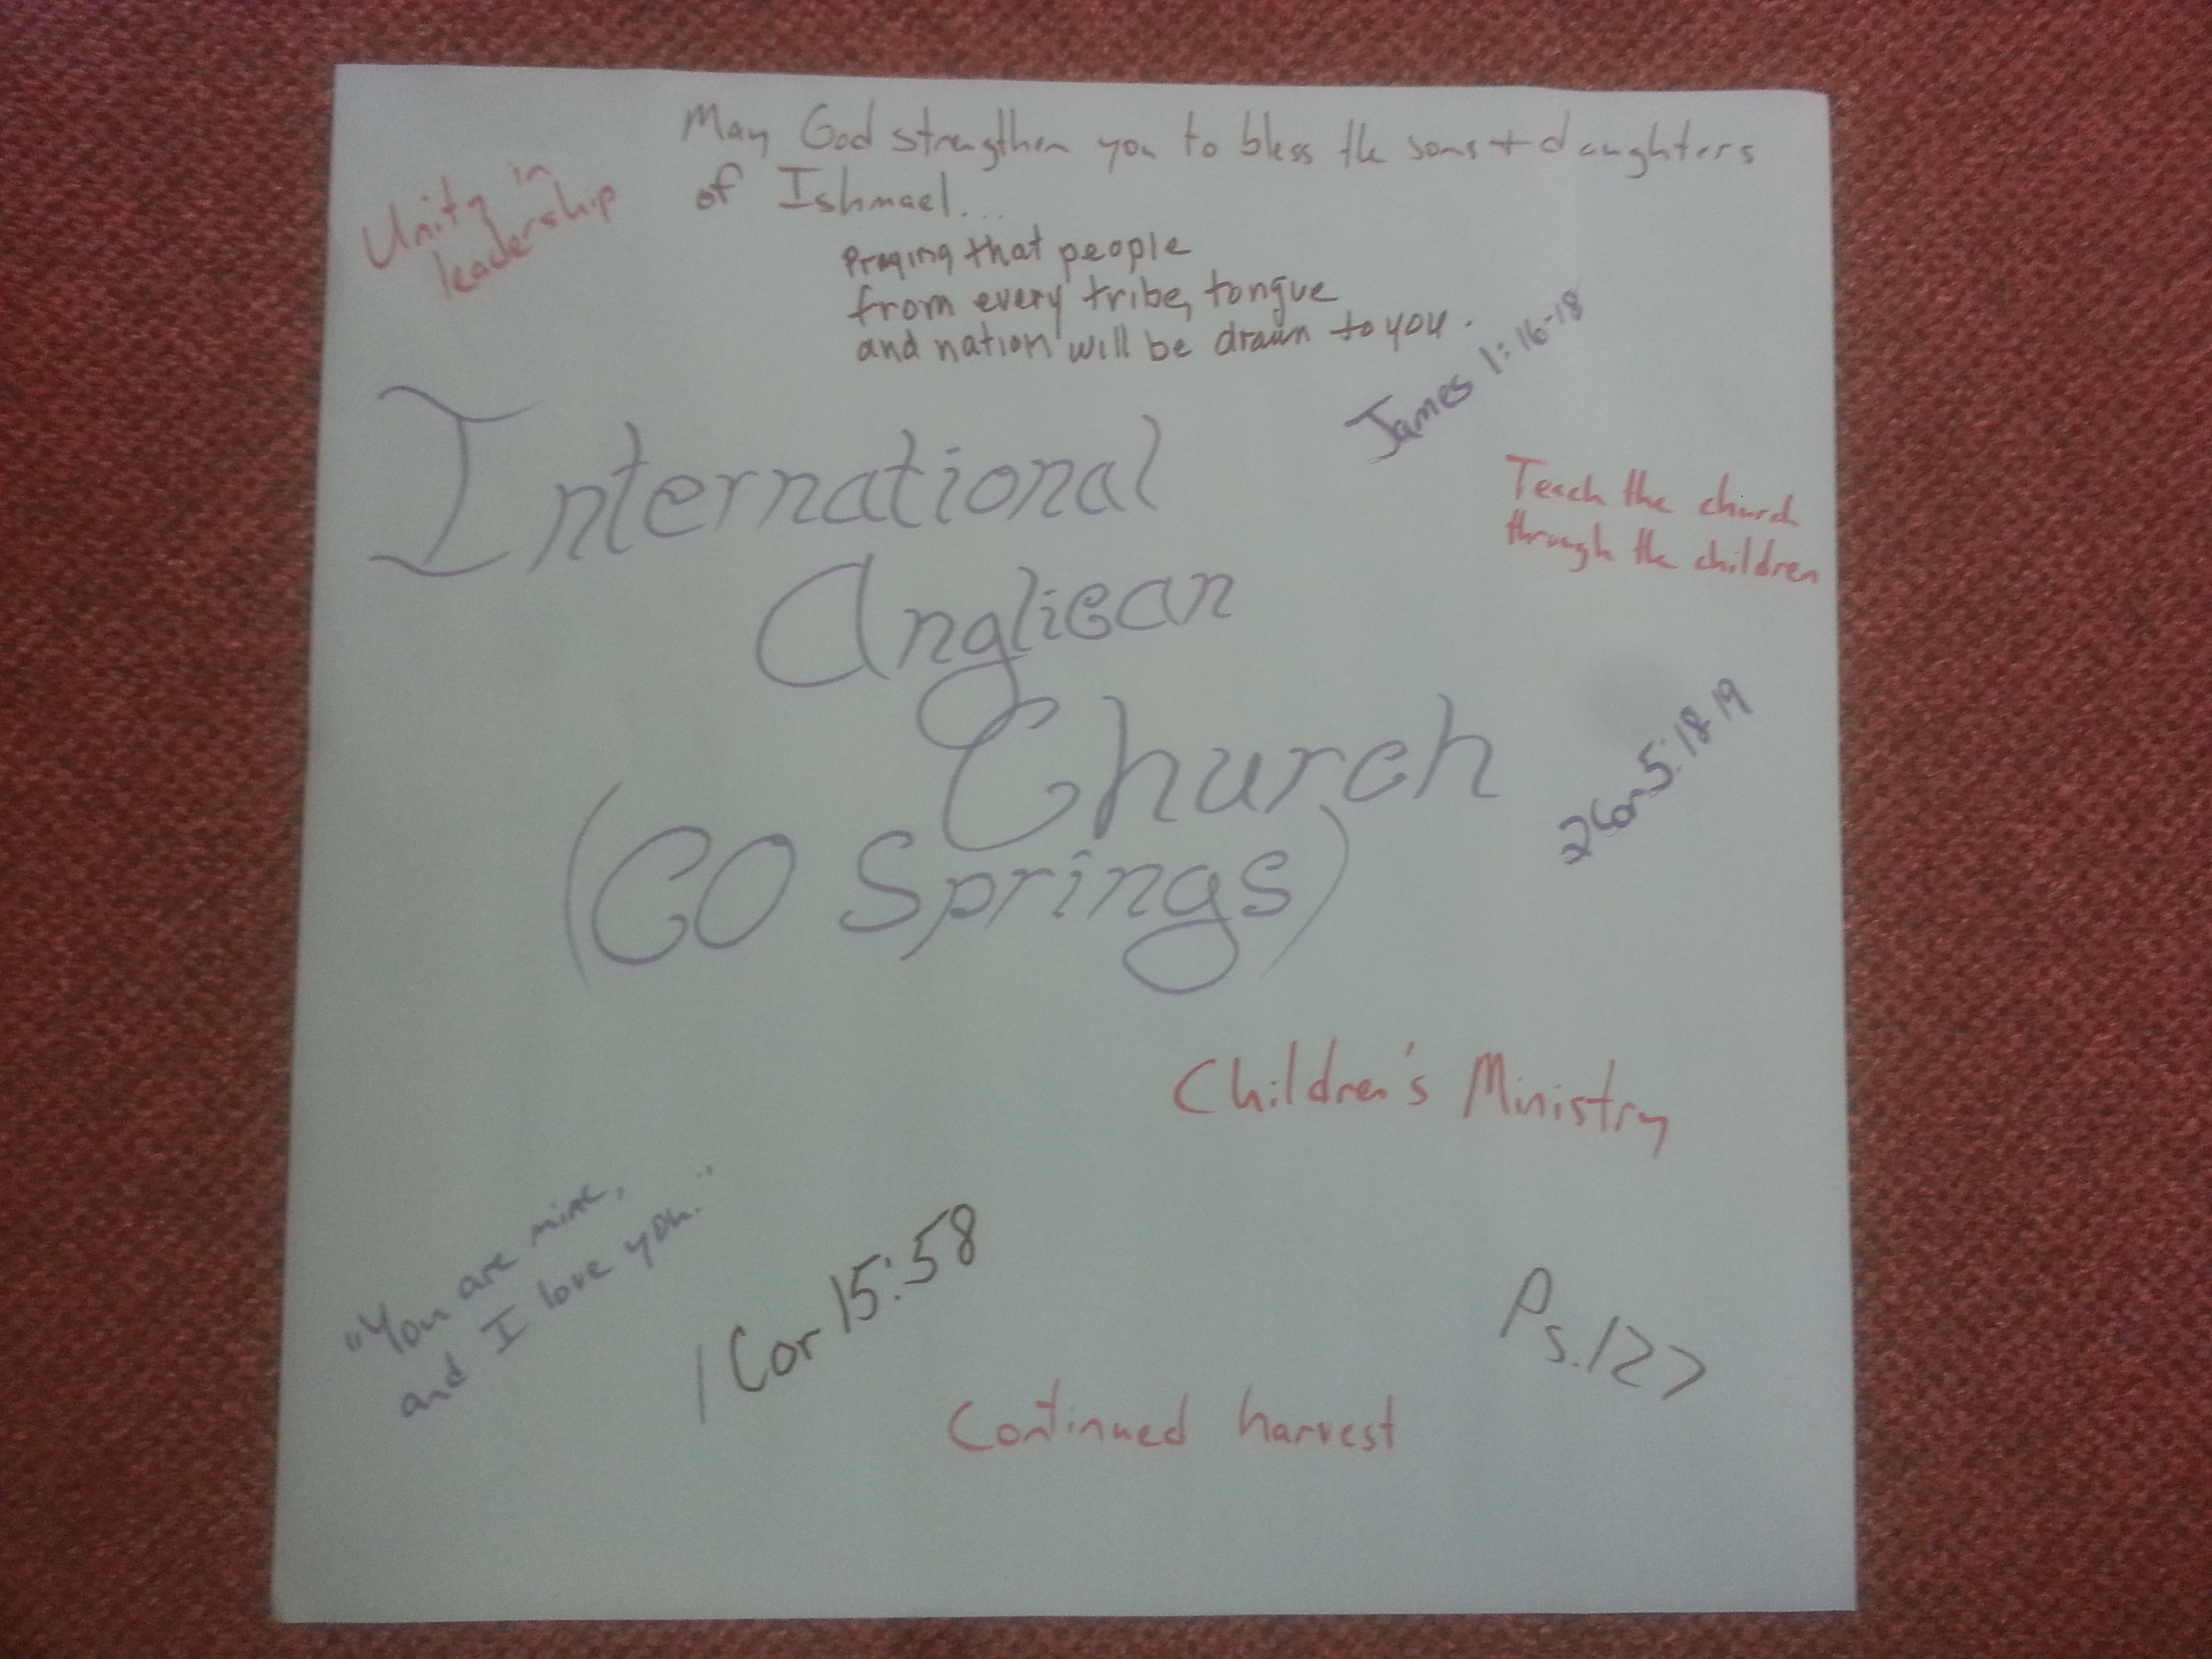 May God strengthen you to bless the sons + daughters
of Ishmael...
Unity in
leadership
Praying that people
from every tribe, tongue
and nation will be drawn to you.
James 1:16-18
International
Anglican
Church
(CO Springs)
Teach the church
through the children
2 Cor 5:18-19
Children's Ministry
"You are mine,
and I love you."
1 Cor 15:58
Ps. 127
Continued harvest